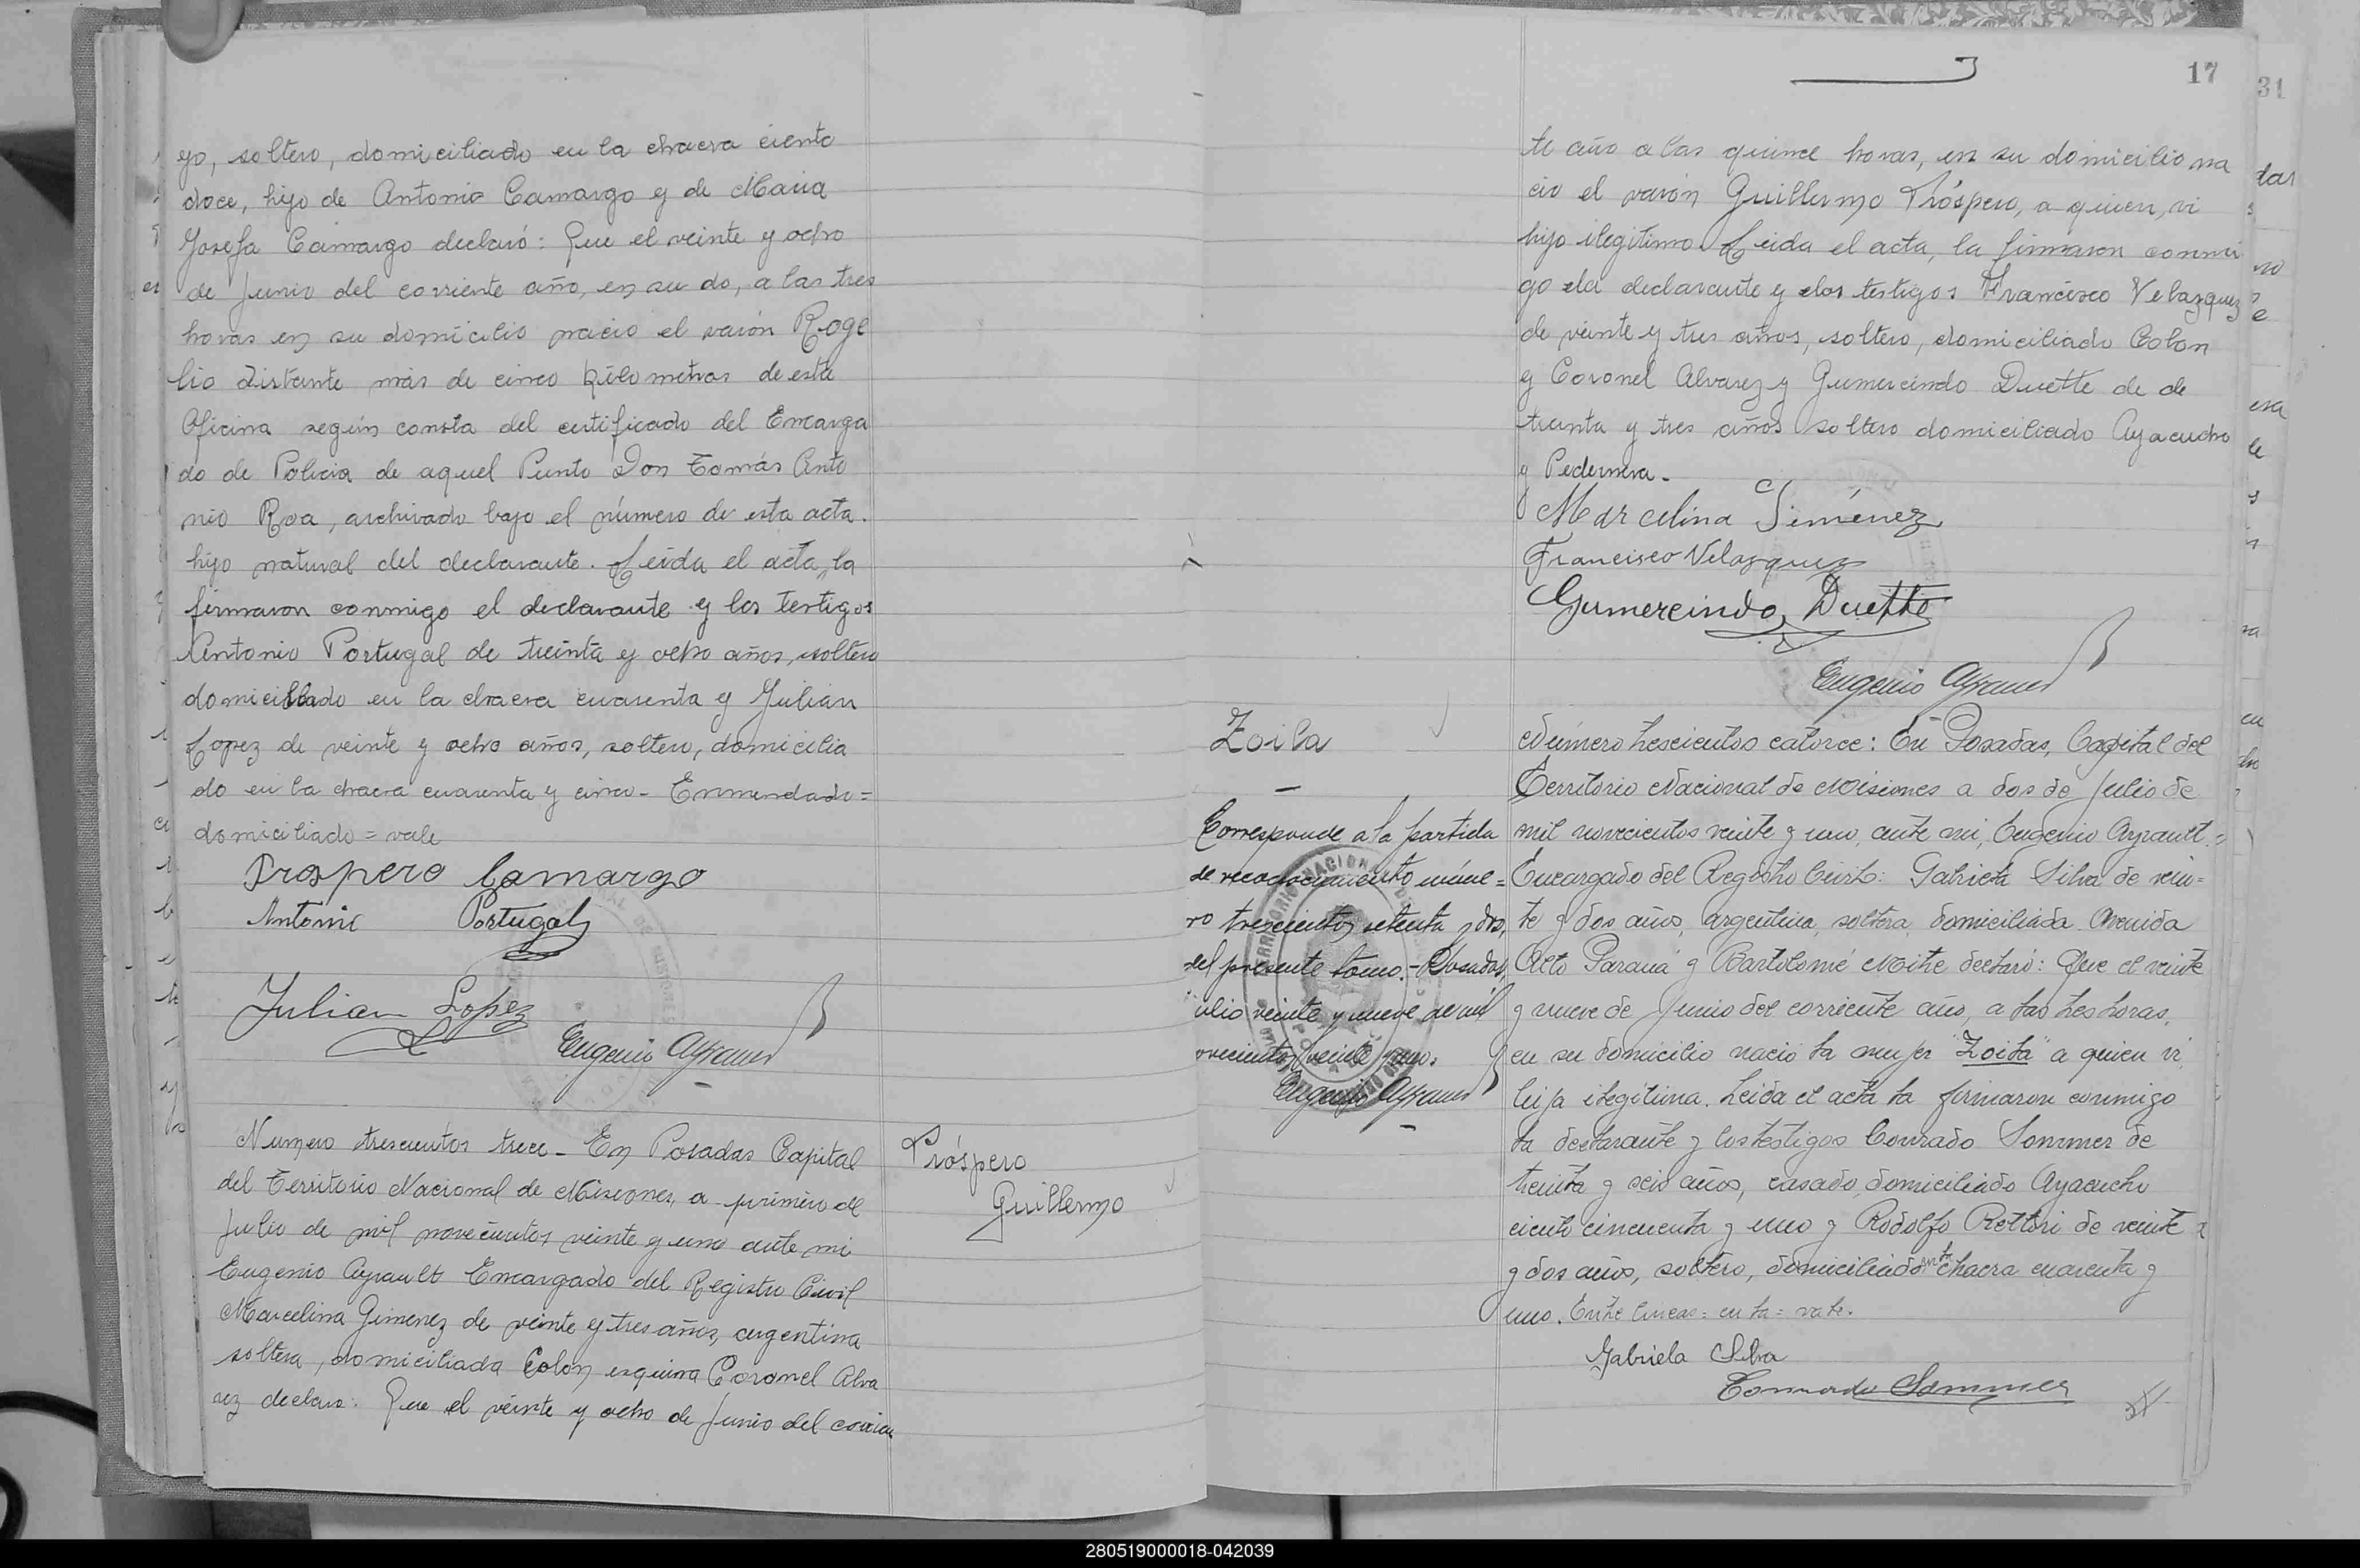 go, soltero, domiciliado en la chacra ciento
doce, hijo de Antonio Camargo y de Maria
Josefa Camargo declaró: Que el veinte y ocho
de Junio del corriente año, en su do, a las tres
horas en su domicilio nació el varón Roge
lio distante más de cinco kilometros de esta
Oficina según consta del certificado del Encarga
do de Policia de aquel Punto Don Tomás Anto
nio Roa, archivado bajo el número de esta acta.
hijo natural del declarante. Leida el acta, la
firmaron conmigo el declarante y los testigos
Antonio Portugal de treinta y ocho años, soltero
domiciliado en la chacra cuarenta y Julian
Lopez de veinte y ocho años, soltero, domicilia
do en la chacra cuarenta y cinco - Enmendado =
domiciliado = vale
Prospero Camargo
Antonio Portugal
Julian Lopez
Eugenio Ayrault
Numero trescientos trece - En Posadas Capital
del Territorio Nacional de Misiones, a primero de
Julio de mil novecientos veinte y uno ante mi
Eugenio Ayrault Encargado del Registro Civil
Marcelina Gimenez de veinte y tres años, argentina
soltera, domiciliada Colon esquina Coronel Alva
rez declaro: Que el veinte y ocho de Junio del corrien
Próspero
Guillermo
17
31
te año a las quince horas, en su domicilio na
cio el varón Guillermo Próspero, a quien, vi
hijo ilegitimo. Leida el acta, la firmaron conmi
go la declarante y los testigos Francisco Velazquez
de veinte y tres años, soltero, domiciliado Colon
y Coronel Alvarez y Gumercindo Duette de de
treinta y tres años soltero domiciliado Ayacucho
y Pedernera.
Marcelina Jiménez
Francisco Velazquez
Gumercindo Duette
Eugenio Ayrault
Zoila
Corresponde a la partida
de reconocimiento núme=
ro trescientos setenta y dos,
del presente tomo.- Posadas,
ulio veinte y nueve de mil
ovecientos veinte y uno.
Eugenio Ayrault
Número trescientos catorce: En Posadas, Capital del
Territorio Nacional de Misiones a dos de Julio de
mil novecientos veinte y uno, ante mi, Eugenio Ayrault=
Encargado del Registro Civil: Gabriela Silva de vein=
te y dos años, argentina, soltera, domiciliada Avenida
Alto Paraná y Bartolomé Mitre declaró: Que el veinte
y nueve de Junio del corriente año, a las tres horas,
en su domicilio nació la mujer "Zoila" a quien vi,
hija ilegitima. Leida el acta la firmaron conmigo
la declarante y los testigos Conrado Sommer de
treinta y seis años, casado, domiciliado Ayacucho
ciento cincuenta y uno y Rodolfo Rettori de veinte
y dos años, soltero, domiciliado en la chacra cuarenta y
uno. Entre lineas = en la = vale.
Gabriela Silva
Conrado Sommer
280519000018-042039